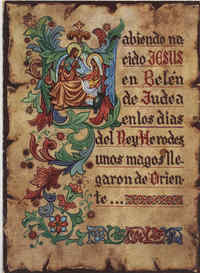 Habiendo na
cido JESUS
en Belén
de Judea
en los dias
del Rey Herodes
unos magos lle
garon de Orien
te...